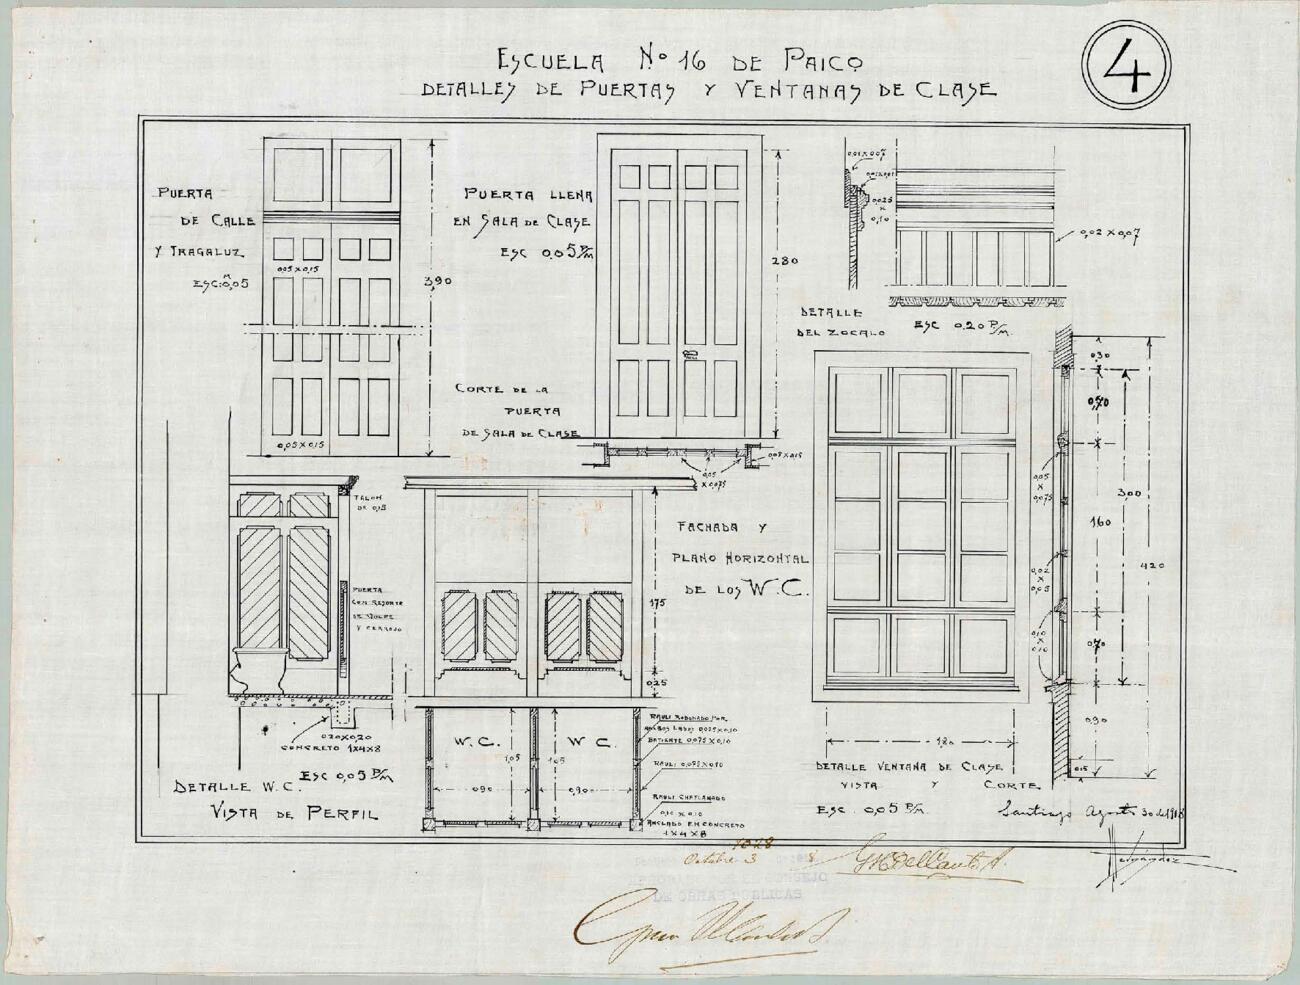 4
ESCUELA Nº 16 DE PAICO
DETALLES DE PUERTAS Y VENTANAS DE CLASE
PUERTA
DE CALLE
Y TRAGALUZ
ESC: 0,05
0,05 X 0,15
3,90
0,05 X 0,15
PUERTA LLENA
EN SALA DE CLASE
ESC 0,05 P/M
280
CORTE DE LA
PUERTA
DE SALA DE CLASE
0,05
X 0,075
0,025
X
0,10
0,02 X 0,07
DETALLE
DEL ZOCALO
ESC 0,20 P/M.
TALON
DE 0,15
PUERTA
CON RESORTE
DE GOLPE
Y CERROJO
0,20 X 0,20
CONCRETO 1X4X8
ESC 0,05 P/M
DETALLE W.C.
VISTA DE PERFIL
FACHADA Y
PLANO HORIZONTAL
DE LOS W.C.
175
0,25
W.C.
W C.
1,05
1,05
0,90
0,90
RAULI REDONDO POR
AMBOS LADOS 0,075 X 0,10
BATIENTE 0,075 X 0,10
RAULI 0,075 X 0,10
RAULI CHAFLANADO
0,10 X 0,10
ANCLADO EN CONCRETO
1 X 4 X 8
0,30
0,70
0,05
X
0,075
3,00
160
420
0,02
X
0,05
0,10
X
0,10
0,70
0,90
0,15
1,80
DETALLE VENTANA DE CLASE
VISTA Y CORTE
ESC. 0,05 P/M.
Santiago Agosto 30 de 1918
Hernández
1028
Octubre 3
8
DE OBRAS PUBLICAS